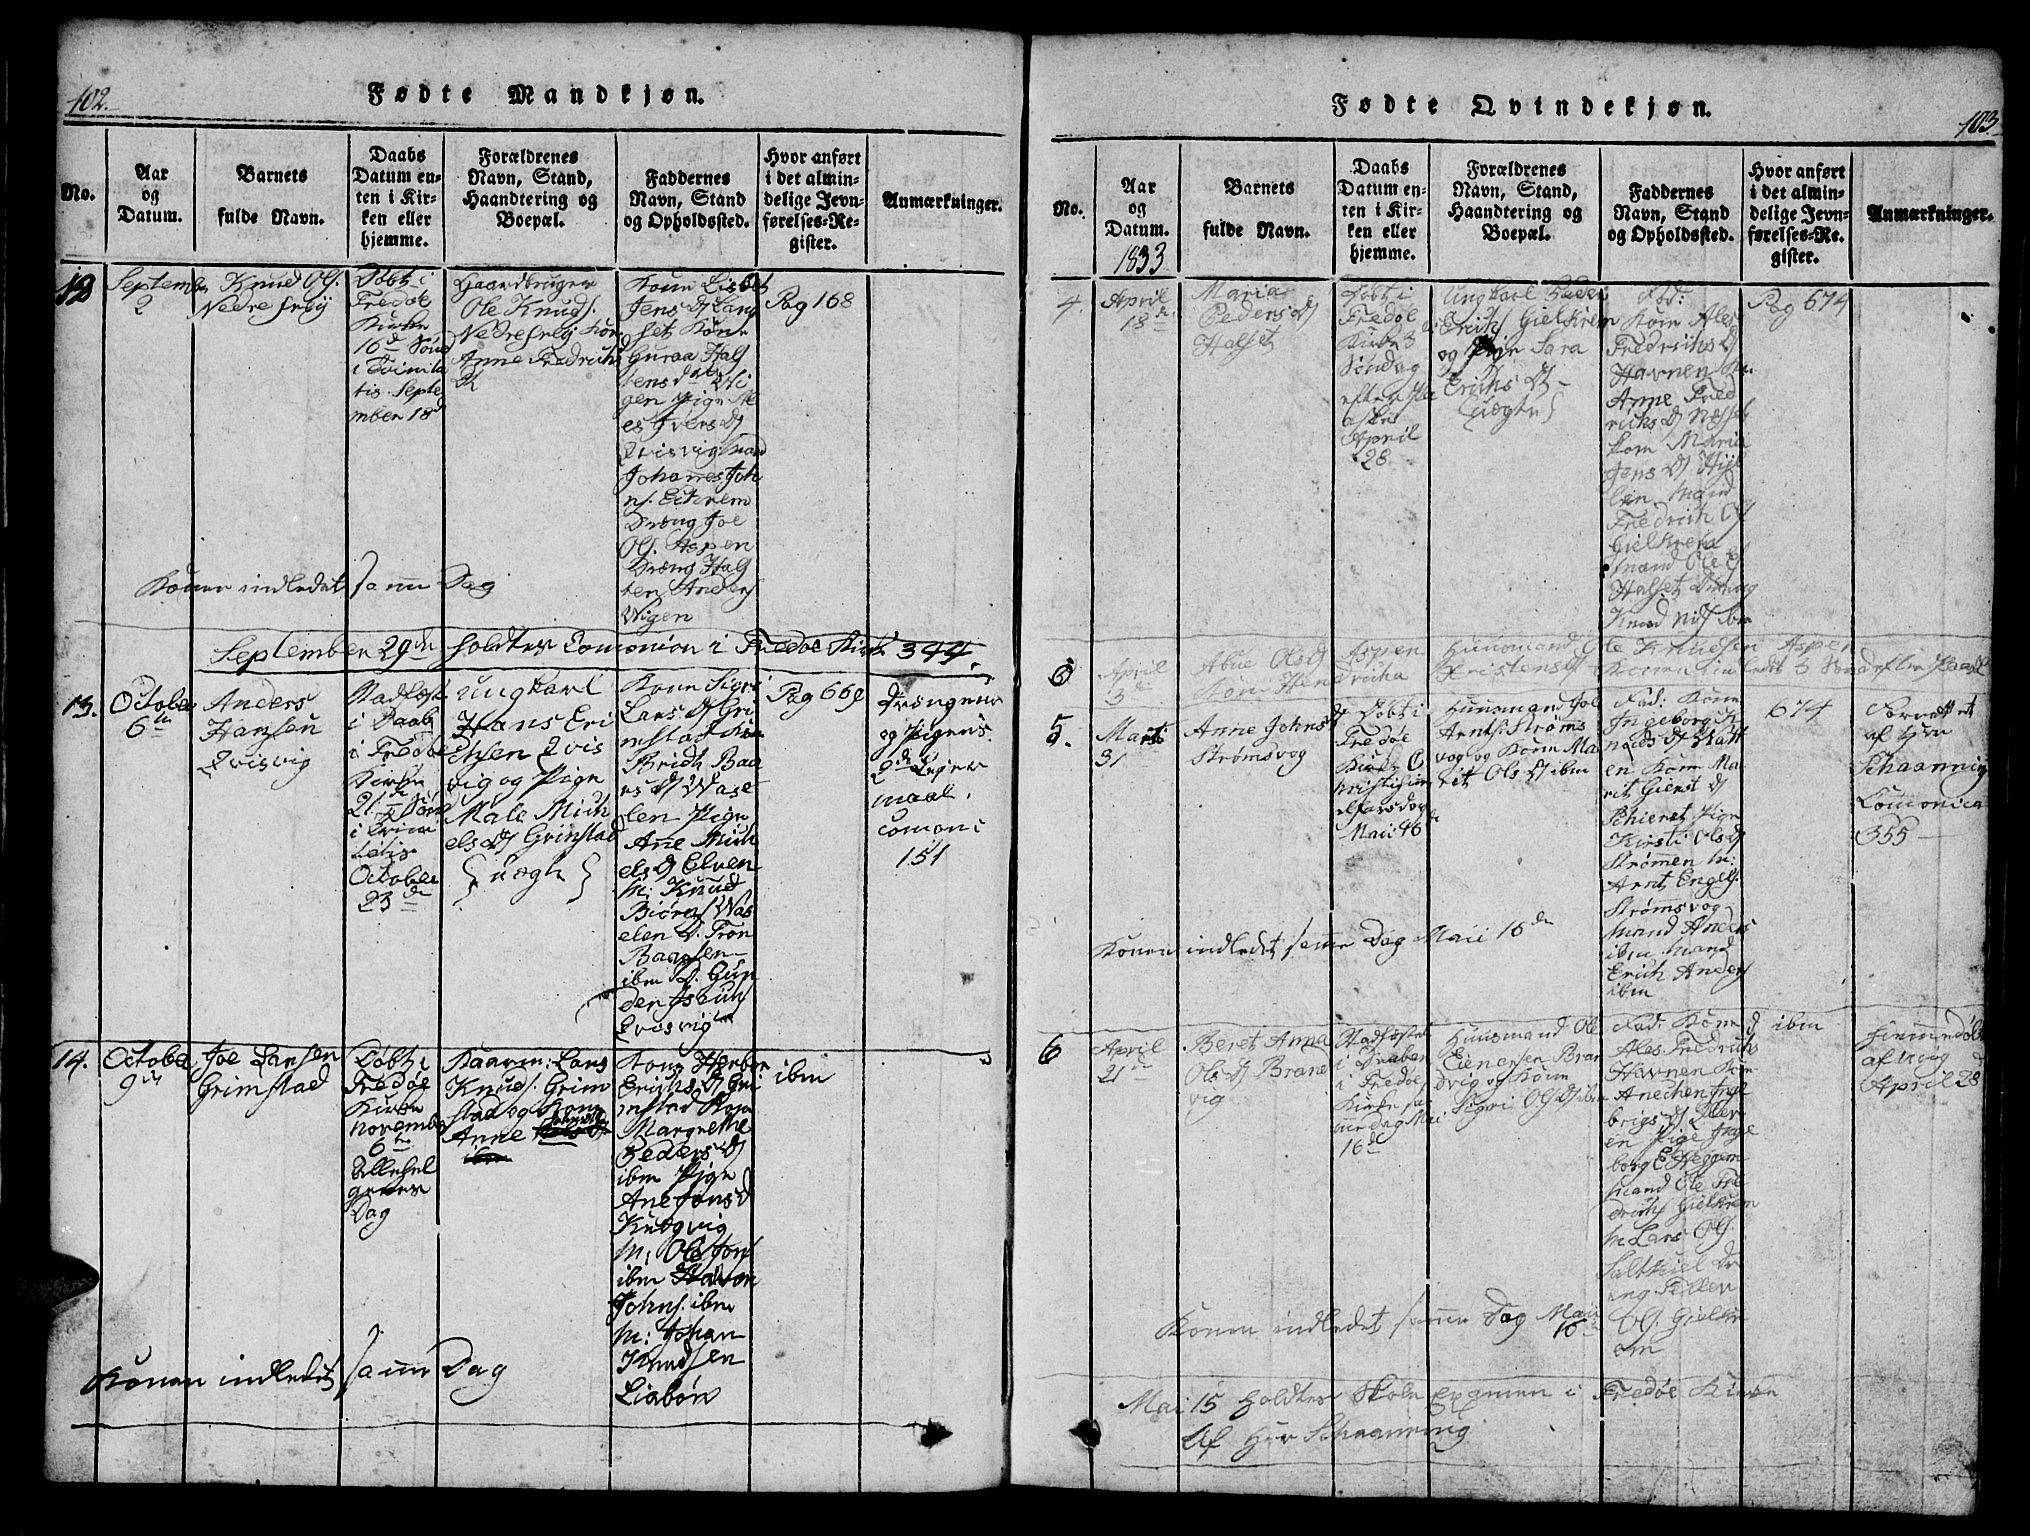 102.
Fødte Mandkjøn.
No.
Aar
og
Datum.
Barnets
fulde Navn.
Daabs
Datum en-
ten i Kir-
ken eller
hjemme.
Forældrenes
Navn, Stand,
Haandtering og
Boepæl.
Faddernes
Navn, Stand
og Opholdssted.
Hvor anført
i det almin-
delige Jevn-
førelses-Re-
gister.
Anmærkninger.
12
Septembr
2
Knud Ols.
Nedre Frey
Døbt i
Fredøe
Kirke
16de Sønd
i Trinita
tis Septe
mber 18d
Gaardbruger
Ole Knuds.
Nedre Frey Kone
Anne Fredrichs
D
Kone Lisbet
Jens D Lang
set Kone
Guraa Hals
tens D Wi
gen Pige
es Ivers D
Qvisvig Mand
Johannes Joh
ns. Echrem
Dræng Joe
Ols. Aspen
Dræng Hals
ten Anders
Wigen
Pag 168
Konen indledet samme Dag
September 29de holdtes Comonion i Fredøe Kirke 344.
13.
October
6te
Anders
Hansen
Qvisvig
Stadfæst
i Daab
i Fredøe
Kirke
21de Sønd
i Trini
tatis
October
23de
Ungkarl
Hans Eri
chsen Qvis
vig og Pige
Male Mich
els D Grimstad
{ uægte }
Kone Sigri
Lars D Gri
mstad Kone
Bridt Baa
rs D Wase
len Pige
Ane Mich
els D Elven
M: Knud
Biørns Was
elen D. Tron
Baarsen
ibm D. Gun
der
Qvisvig
Pag 669
Drængens
og Pigens
2de Leyer
maal.
comoni
151
14.
October
9de
Joe Larsen
Grimstad
Døbt i
Fredøe
Kirke
November
6te
Allehel
genes
Dag
Gaarm: Lars
Knuds. Grim
stad og Kone
Anne
Erichs D Gri
mstad Kone
Margrethe
Peders D
ibm Pige
Ane Jons D
Kutgvig
M: Ole Jons
ibm Haavon
Johns. ibm
M: Johan
Knudsen
Liabøn
ibm
Konen indledet samme Dag
Fødte Qvindekjøn.
103.
No.
Aar
og
Datum.
1833
Barnets
fulde Navn.
Daabs
Datum en-
ten i Kir-
ken eller
hjemme.
Forældrenes
Navn, Stand,
Haandtering og
Boepæl.
Faddernes
Navn, Stand
og Opholdssted.
Hvor anført
i det almin-
delige Jevn-
førelses-Re-
gister.
Anmærkninger.
4
April
18de
Maria
Peders D
Halset
Døbt i
Fredøe
Kirke 3de
Søndag
efter Pa
aske
April
28
Ungkarl Peder
Erichs Gielkrem
og Pige Sara
Erichs D
{uægte}
Fad:
Kone Ales
Fredrichs D
Havnen
Anne Fred
richs D Næsset
Kone Maria
Jens D
Mand
Fredrich Ols
Gielkrem
Mand Ole
Halset Dræng
Knud Nils ibm
Pag 674
April
3
Abue Ols D
Aspen
Huusmand Ole Knudsen Aspen
Kone Hendricha Kristens D Konen indledet 3 Sønd efter Paaske
5.
Marti
31
Anne Johns D
Strømsvog
Døbt i
Fredøe
Kirke C
hristi Him
elfarsdag
Maii 16de
Huusmand Jon
Arnts. Strøms
vog og Kone Ma
rit Ols D ibm
Fad: Kone
Ingeborg K
nuds D Watt
en Kone Ma
rit Giert D
Schieret Pige
Kirsti Ols D
Strømmen M:
Arnt Engels.
Strømsvog
Mand Anders
ibm Mand
Erich Anders
ibm
674
Forrettet
af Hr
Schaanning
Comonica
355
Konen indledet samme Dag Maii 16de
6
April
21de
Beret Anna
Ols D Brand
vig
Stadfæstet
i Daaben
i Fredøe
Kirke
Mai
16de
Huusmand Ole
Einersen Bran
dvig og Kone
Sigri Ols D ibm
Fad: Kone
Ales Fredrichs D
Havnen Kone
Anechen Inge
brigs D
en Pige Inge
borg E Heggem
Mand Ole Fre
drichs Gielkrem
M Lars Ols.
Saltkiel Dr
æng
Ols. Gielkr
em
ibm
Hiemmedøbt
af
April 28
Konen indledet samme Dag Maii
16
Mai 15 holdtes Skole Examen i Fredøe Kirke
Af Herr Schaanning